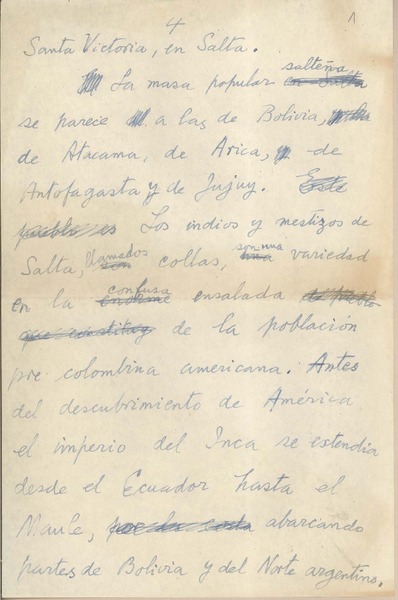 4
1
Santa Victoria, en Salta.
La masa popular salteña
se parece a las de Bolivia,
de Atacama, de Arica, de
Antofagasta y de Jujuy. Este
pueblo es Los indios y mestizos de
Salta, llamados collas, son una variedad
en la confusa enorme ensalada de pueblo
que constituy de la población
pre colombina americana. Antes
del descubrimiento de América
el imperio del Inca se estendía
desde el Ecuador hasta el
Maule, por la costa abarcando
partes de Bolivia y del Norte argentino.